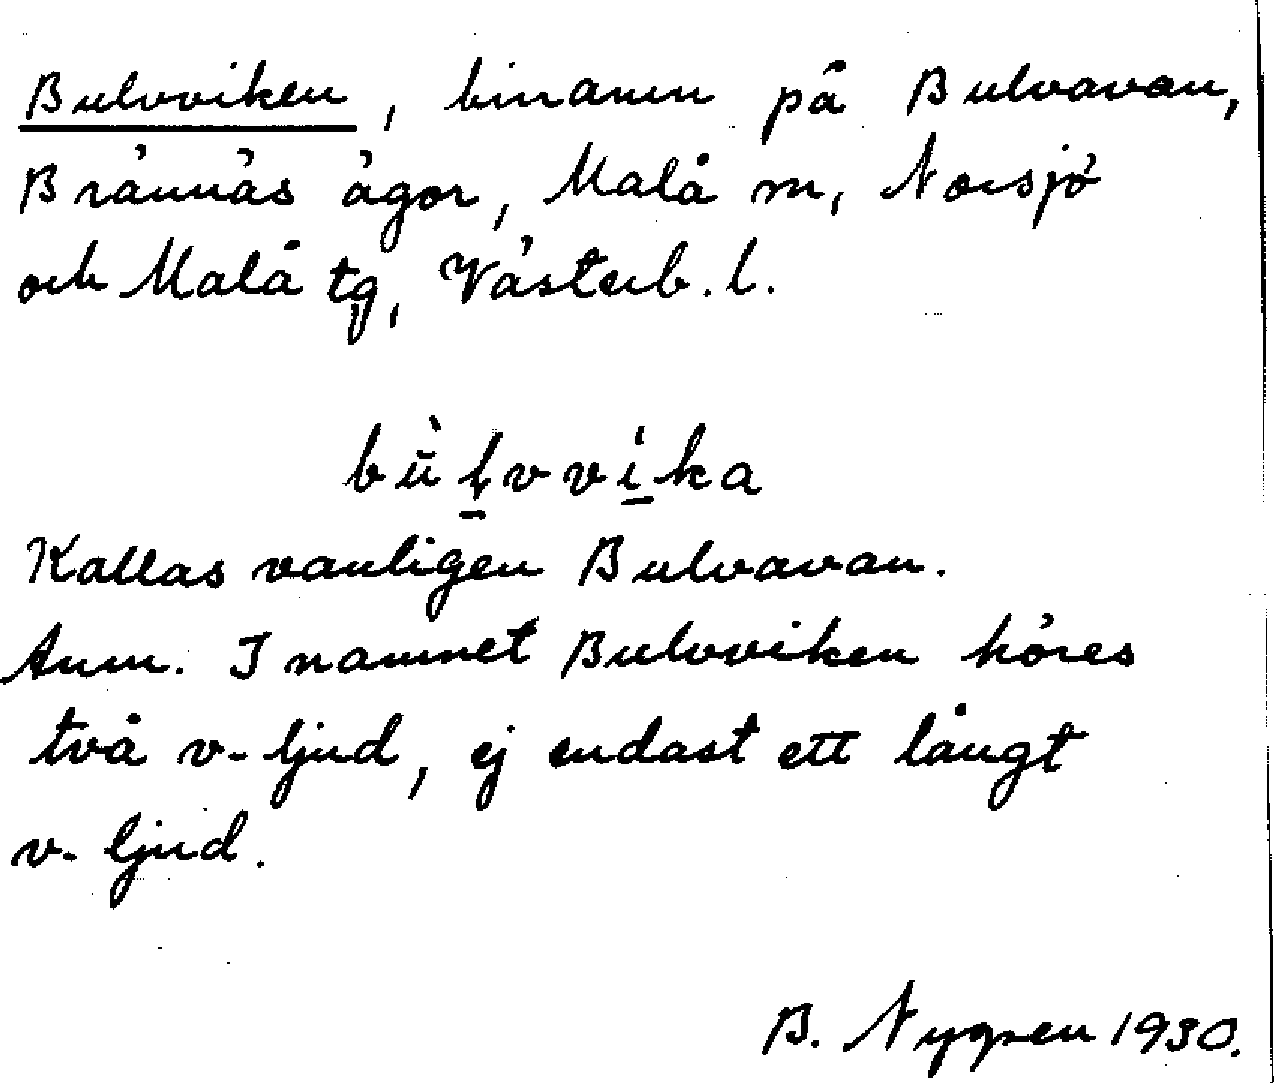 Bulvviken, binamn på Bulvavan,
Brännäs ägor, Malå sn, Norsjö
och Malå tg, Västerb. l.
bu̇̀ḷvvi̱ka
Kallas vanligen Bulvavan.
Anm. I namnet Bulvviken höres
två v-ljud, ej endast ett långt
v-ljud.
B. Nygren 1930.